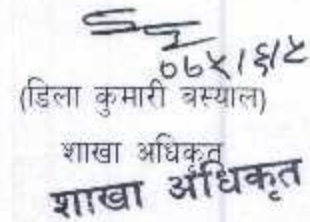 ०७५।६।५
(डिला कुमारी बस्याल)
शाखा अधिकृत
शाखा अधिकृत